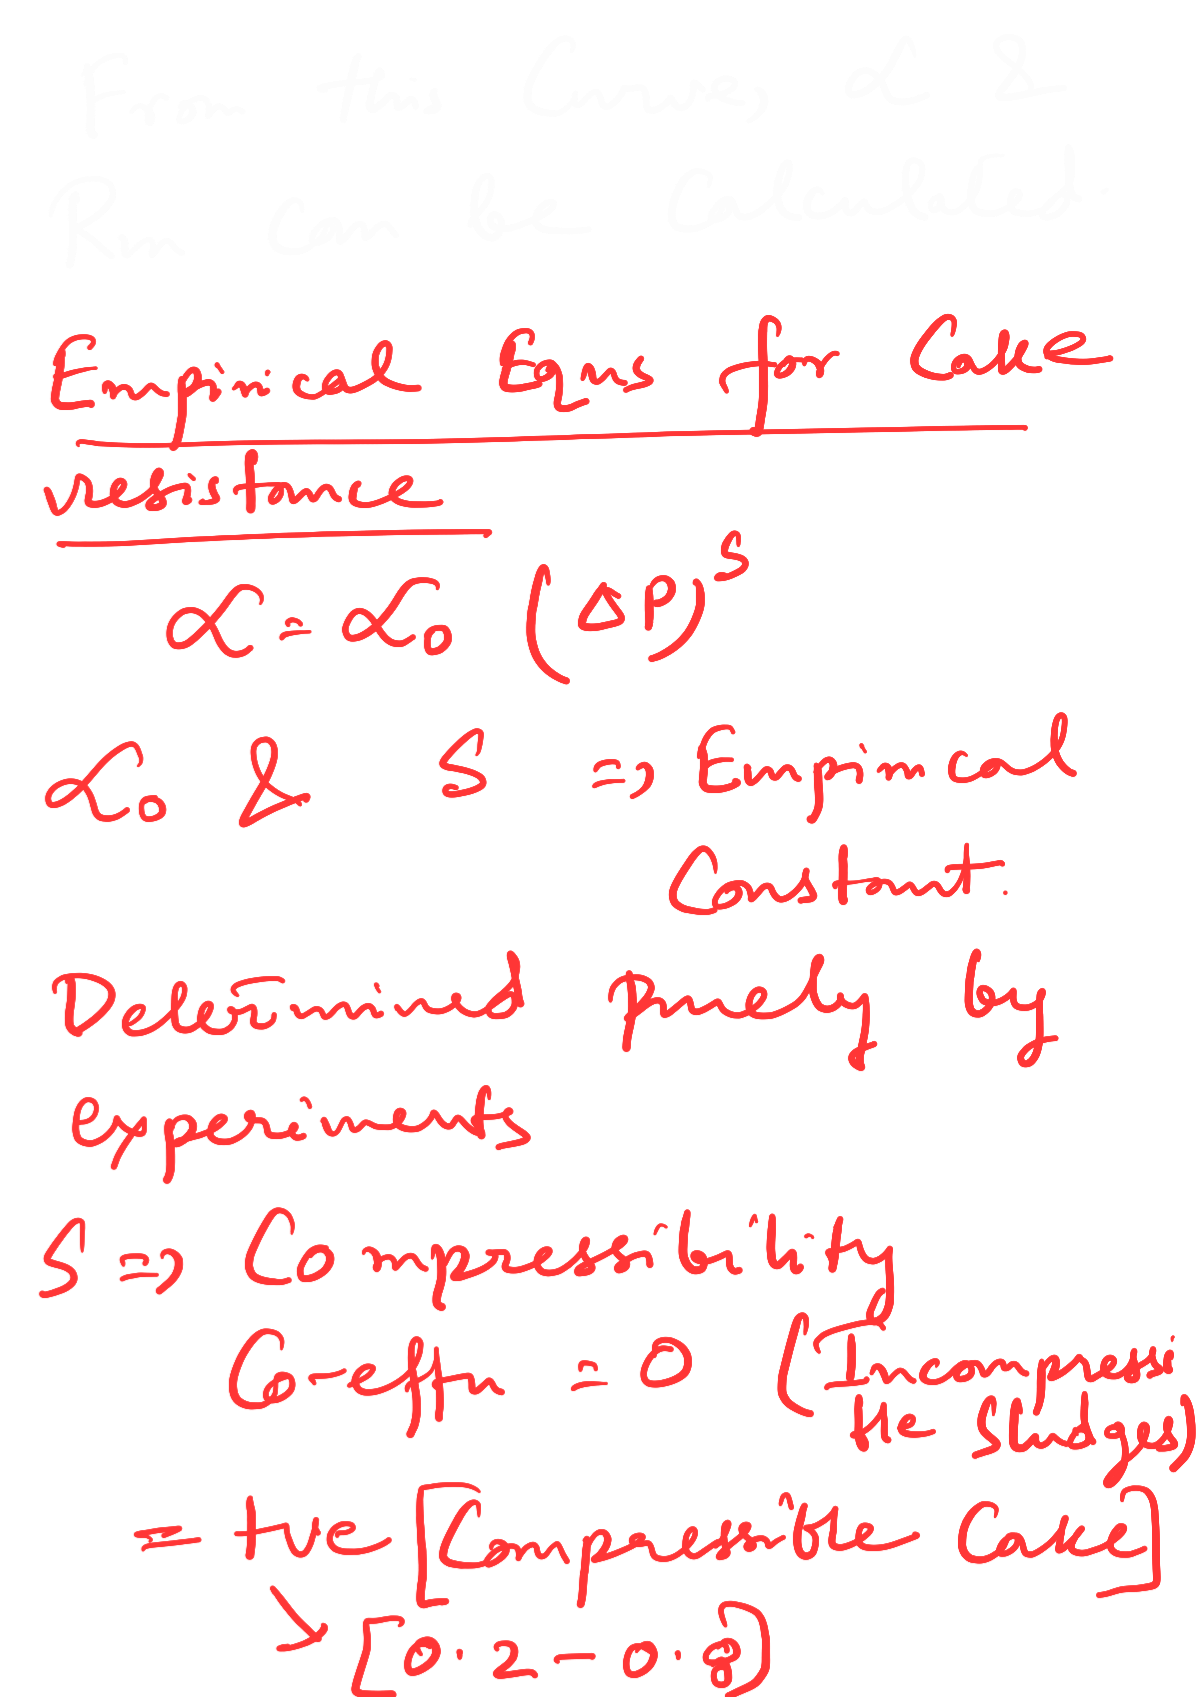 From this Curve, α &
Rm can be calculated.
Empirical Eqns for Cake
resistance
α = α₀ (ΔP)^s
α₀ & S => Empirical
Constant.
Determined purely by
experiments
S => Compressibility
Co-effn = 0 (Incompressi
ble Sludges)
= +ve [Compressible Cake]
[0.2-0.8]